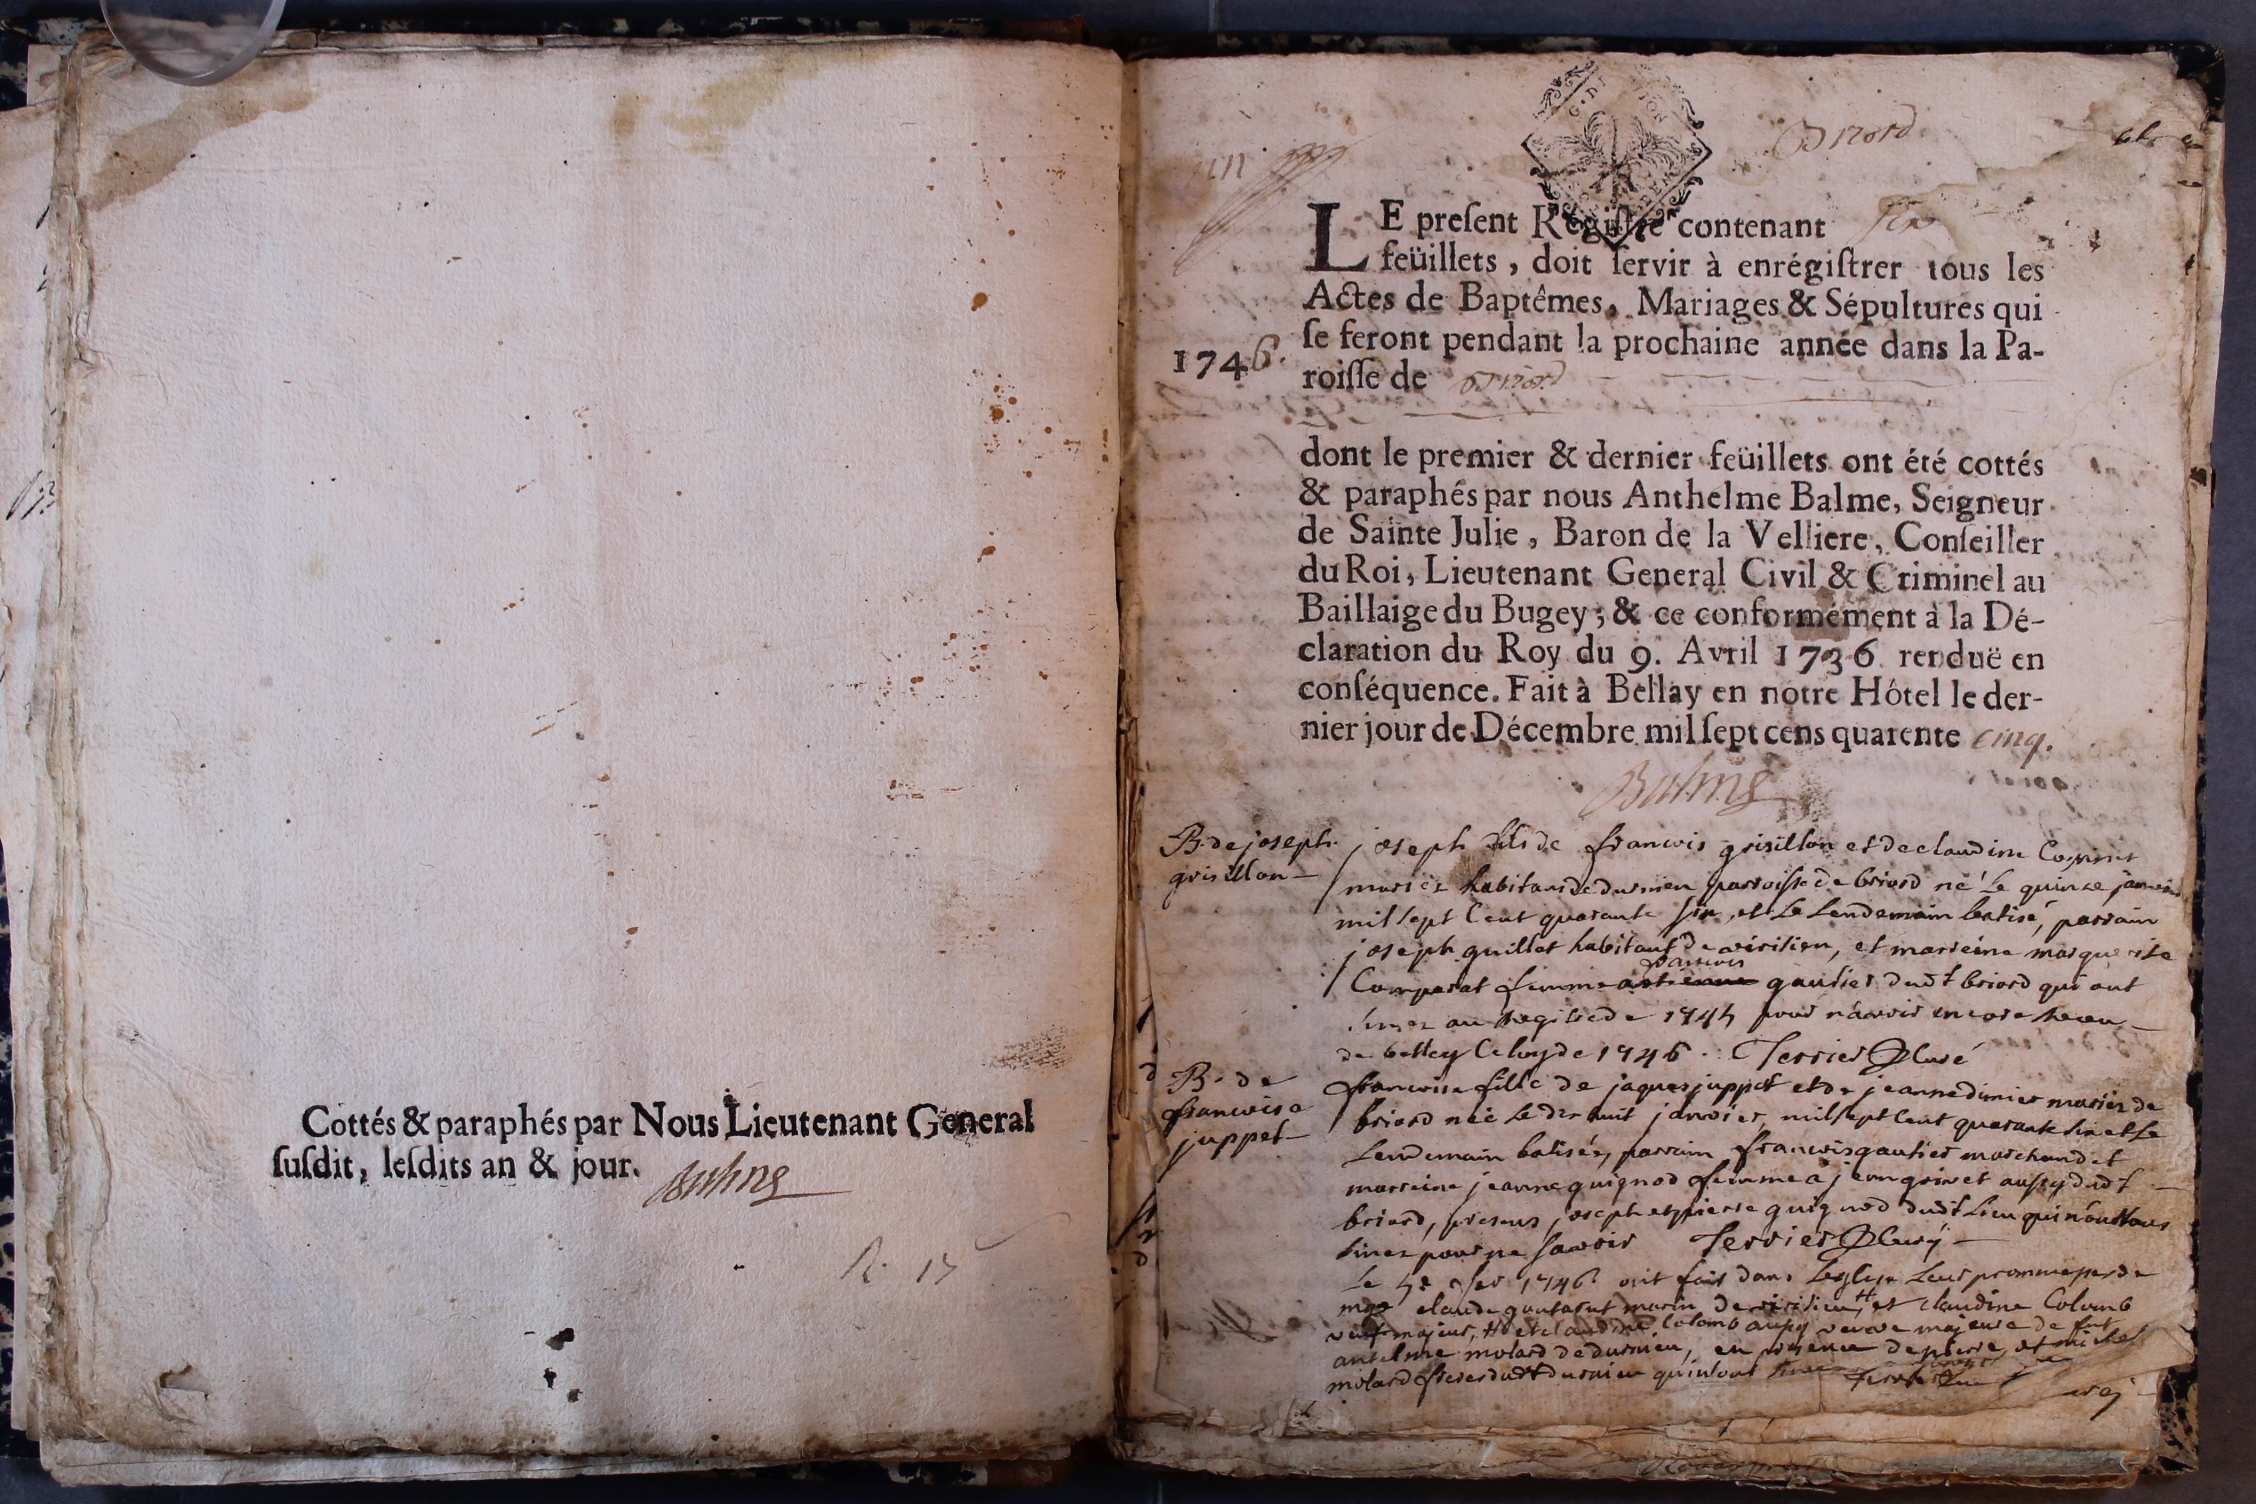 Cottés & paraphés par Nous Lieutenant General
suſdit, leſdits an & jour. Balme
R. 15
Briord
LE preſent Regiſtre contenant six
feüillets, doit ſervir à enrégiſtrer tous les
Actes de Baptêmes, Mariages & Sépultures qui
ſe feront pendant la prochaine année dans la Pa-
1746.
roiſſe de Briord
dont le premier & dernier feüillets ont été cottés
& paraphés par nous Anthelme Balme, Seigneur
de Sainte Julie, Baron de la Velliere, Conſeiller
du Roi, Lieutenant General Civil & Criminel au
Baillaige du Bugey; & ce conformément à la Dé-
claration du Roy du 9. Avril 1736 renduë en
conſéquence. Fait à Bellay en notre Hôtel le der-
nier jour de Décembre mil ſept cens quarente cinq.
Balme
B. de joseph
grisillon
joseph fils de francois grisillon et de claudine
mariez habitans de durnieu parroisse de briord né le quinze janvier
mil sept cent quarante six et le lendemain batisé, parrain
joseph guillet habitant de virisieu, et marreine marguerite
Comparat femme a francois gautier dudt briord qui ont
au registre de 1745 pour n'avoir encore receu
de belley celuy de 1746. Terrier Curé
B. de
francoise
juppet
francoise fille de jaques juppet et de jeanne dimier mariez de
briord née le dix huit janvier, mil sept cent quarante six et le
lendemain batisée, parrain francois gautier marchand et
marreine jeanne guignod femme a jean grivet aussy dudt
briord, presens joseph et pierre guignod dudt lieu qui
sinez pour ne savoir Terrier Curé
Le 5e 1746 ont fait dans leglise leur
claude de virisieu, et claudine Colomb
majeur, et claudine Colomb aussy veuve majeure de fut
antelme molard de durnieu, en presence de pierre, et michel
molard freres dudt durnieu qui n'ont